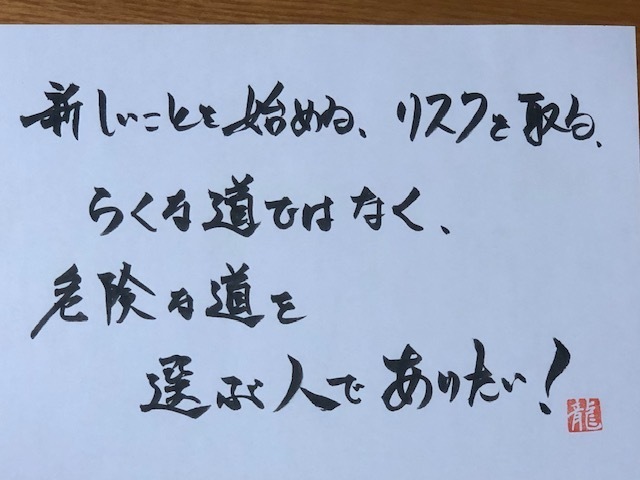 新しいことを始める、リスクを取る、
らくな道ではなく、
危険な道を
選ぶ人でありたい!
龍